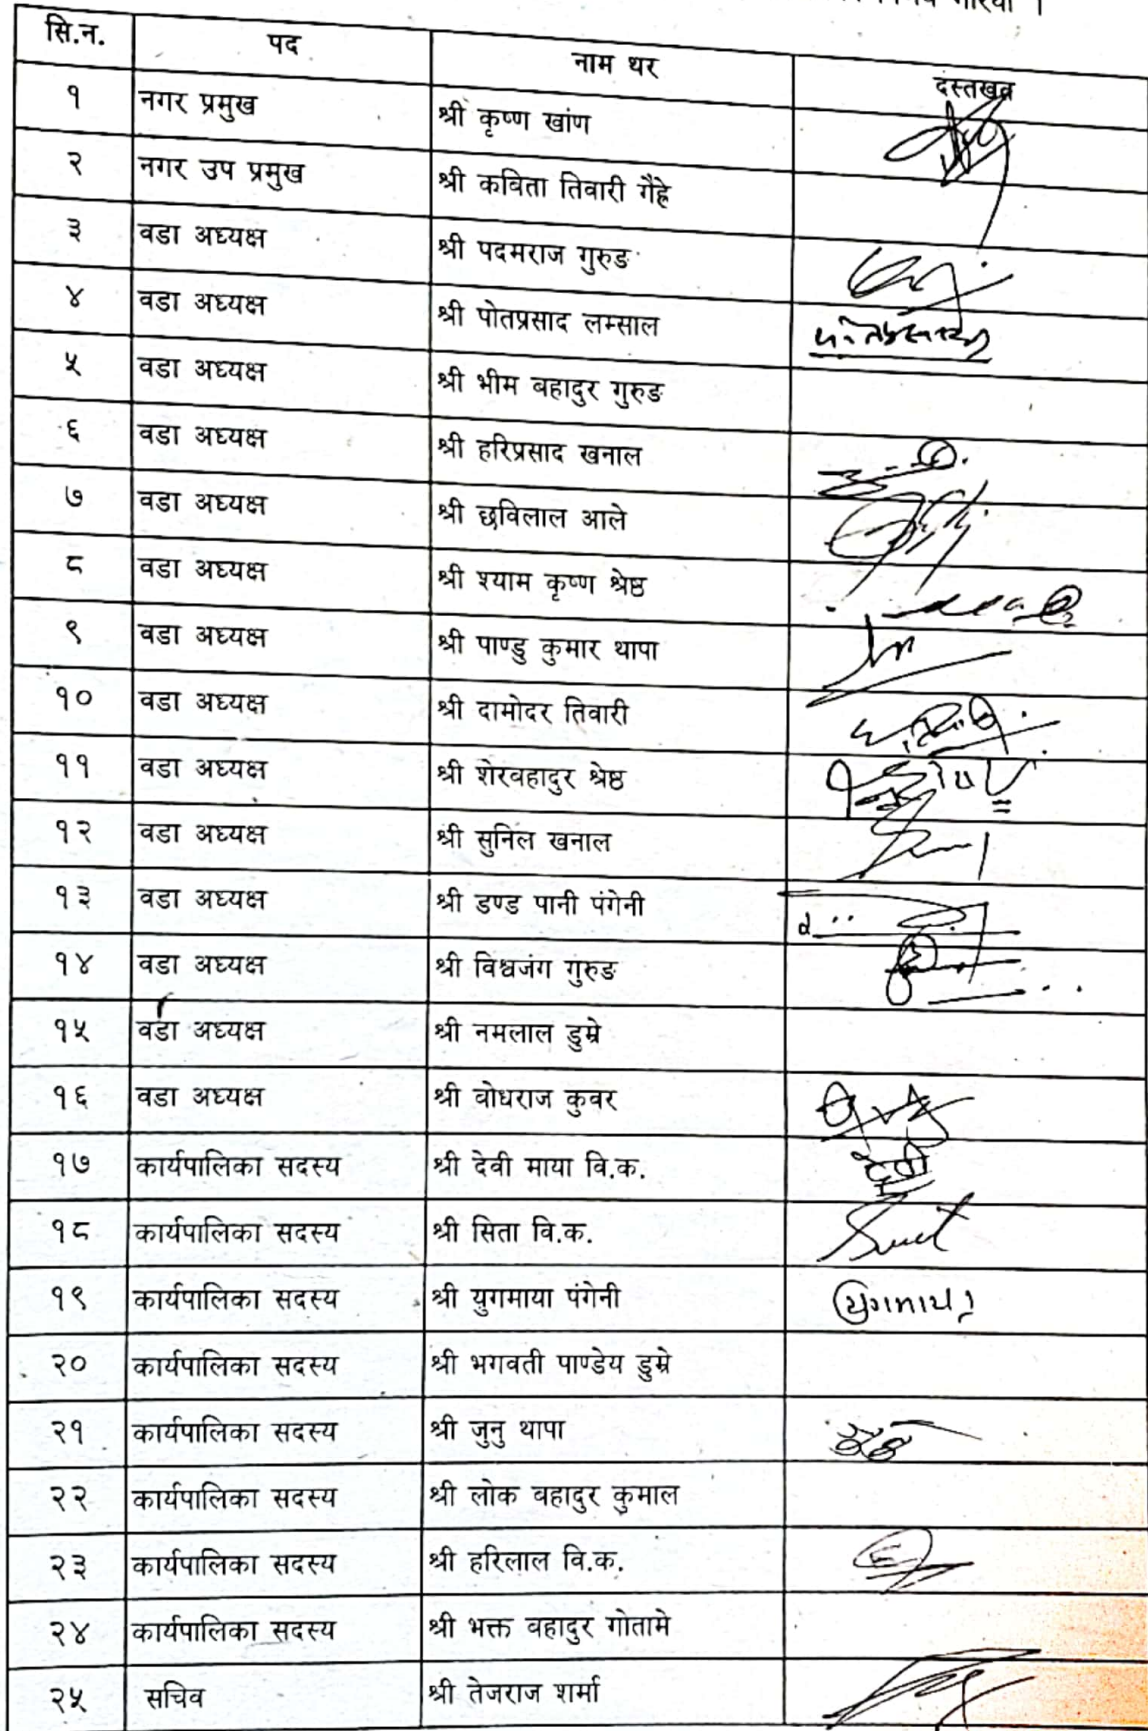 गरियो ।
सि.न. पद नाम थर दस्तखत
१ नगर प्रमुख श्री कृष्ण खांण
२ नगर उप प्रमुख श्री कविता तिवारी गैह्रे
३ वडा अध्यक्ष श्री पदमराज गुरुङ
४ वडा अध्यक्ष श्री पोतप्रसाद लम्साल
५ वडा अध्यक्ष श्री भीम बहादुर गुरुङ
६ वडा अध्यक्ष श्री हरिप्रसाद खनाल
७ वडा अध्यक्ष श्री छविलाल आले
८ वडा अध्यक्ष श्री श्याम कृष्ण श्रेष्ठ
९ वडा अध्यक्ष श्री पाण्डु कुमार थापा
१० वडा अध्यक्ष श्री दामोदर तिवारी
११ वडा अध्यक्ष श्री शेरवहादुर श्रेष्ठ
१२ वडा अध्यक्ष श्री सुनिल खनाल
१३ वडा अध्यक्ष श्री डण्ड पानी पंगेनी
१४ वडा अध्यक्ष श्री विश्वजंग गुरुङ
१५ वडा अध्यक्ष श्री नमलाल डुम्रे
१६ वडा अध्यक्ष श्री वोधराज कुवर
१७ कार्यपालिका सदस्य श्री देवी माया वि.क. देवी
१८ कार्यपालिका सदस्य श्री सिता वि.क.
१९ कार्यपालिका सदस्य श्री युगमाया पंगेनी युगमाया
२० कार्यपालिका सदस्य श्री भगवती पाण्डेय डुम्रे
२१ कार्यपालिका सदस्य श्री जुनु थापा
२२ कार्यपालिका सदस्य श्री लोक वहादुर कुमाल
२३ कार्यपालिका सदस्य श्री हरिलाल वि.क.
२४ कार्यपालिका सदस्य श्री भक्त वहादुर गोतामे
२५ सचिव श्री तेजराज शर्मा